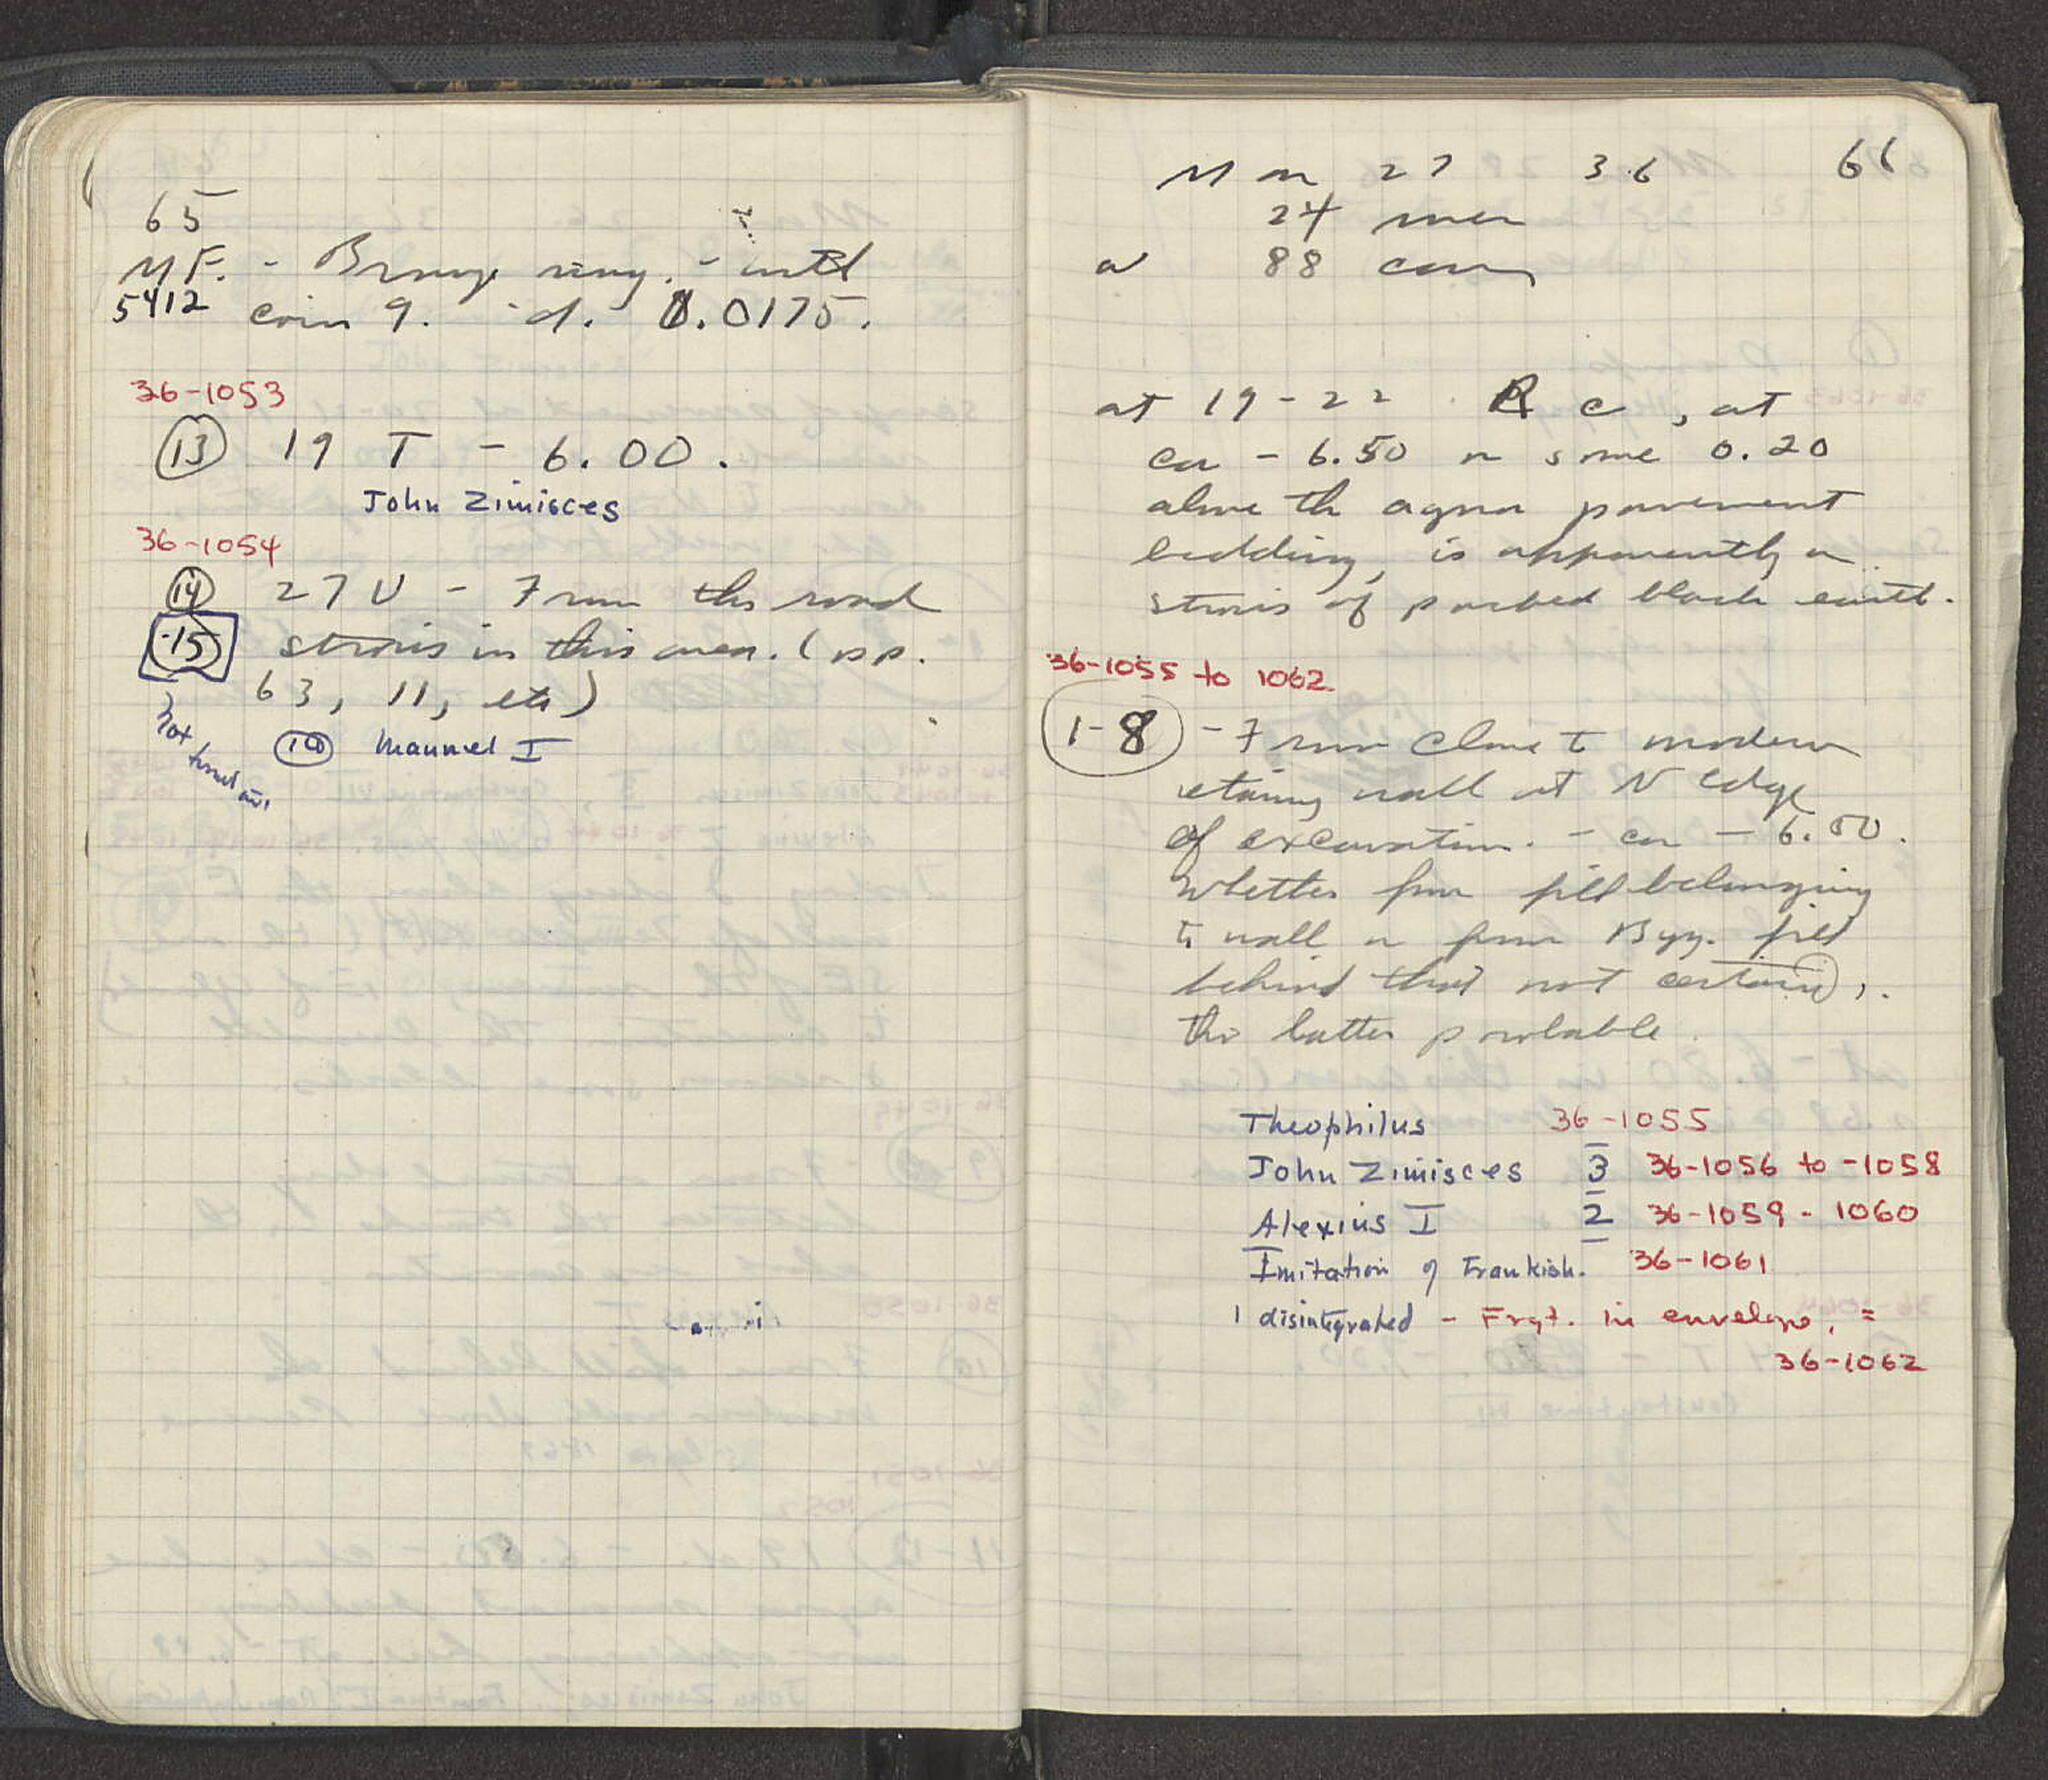 65
MF. - Bronze ring. - with
5412 coin 9. d. 0.0175.
36-1053
13 19 T - 6.00.
John Zimisces
36-1054
14 27 U - From the road
15 strosis in this area. (pp.
63, 11, etc)
not turned in.
Manuel I
Mar 27 36 66
24 men
88 cars
at 19-22 C, at
ca - 6.50 or some 0.20
above the agora pavement
bedding, is apparently a
strosis of packed black earth.
36-1055 to 1062
1-8 - From close to modern
retaining wall at N edge
of excavation. - ca - 6.00.
Whether from fill belonging
to wall or from Byz. fill
behind that not certain,
the latter probable.
Theophilus 36-1055
John Zimisces 3 36-1056 to -1058
Alexius I 2 36-1059 - 1060
Imitation of Frankish. 36-1061
1 disintegrated - Frgt. in envelope, =
36-1062